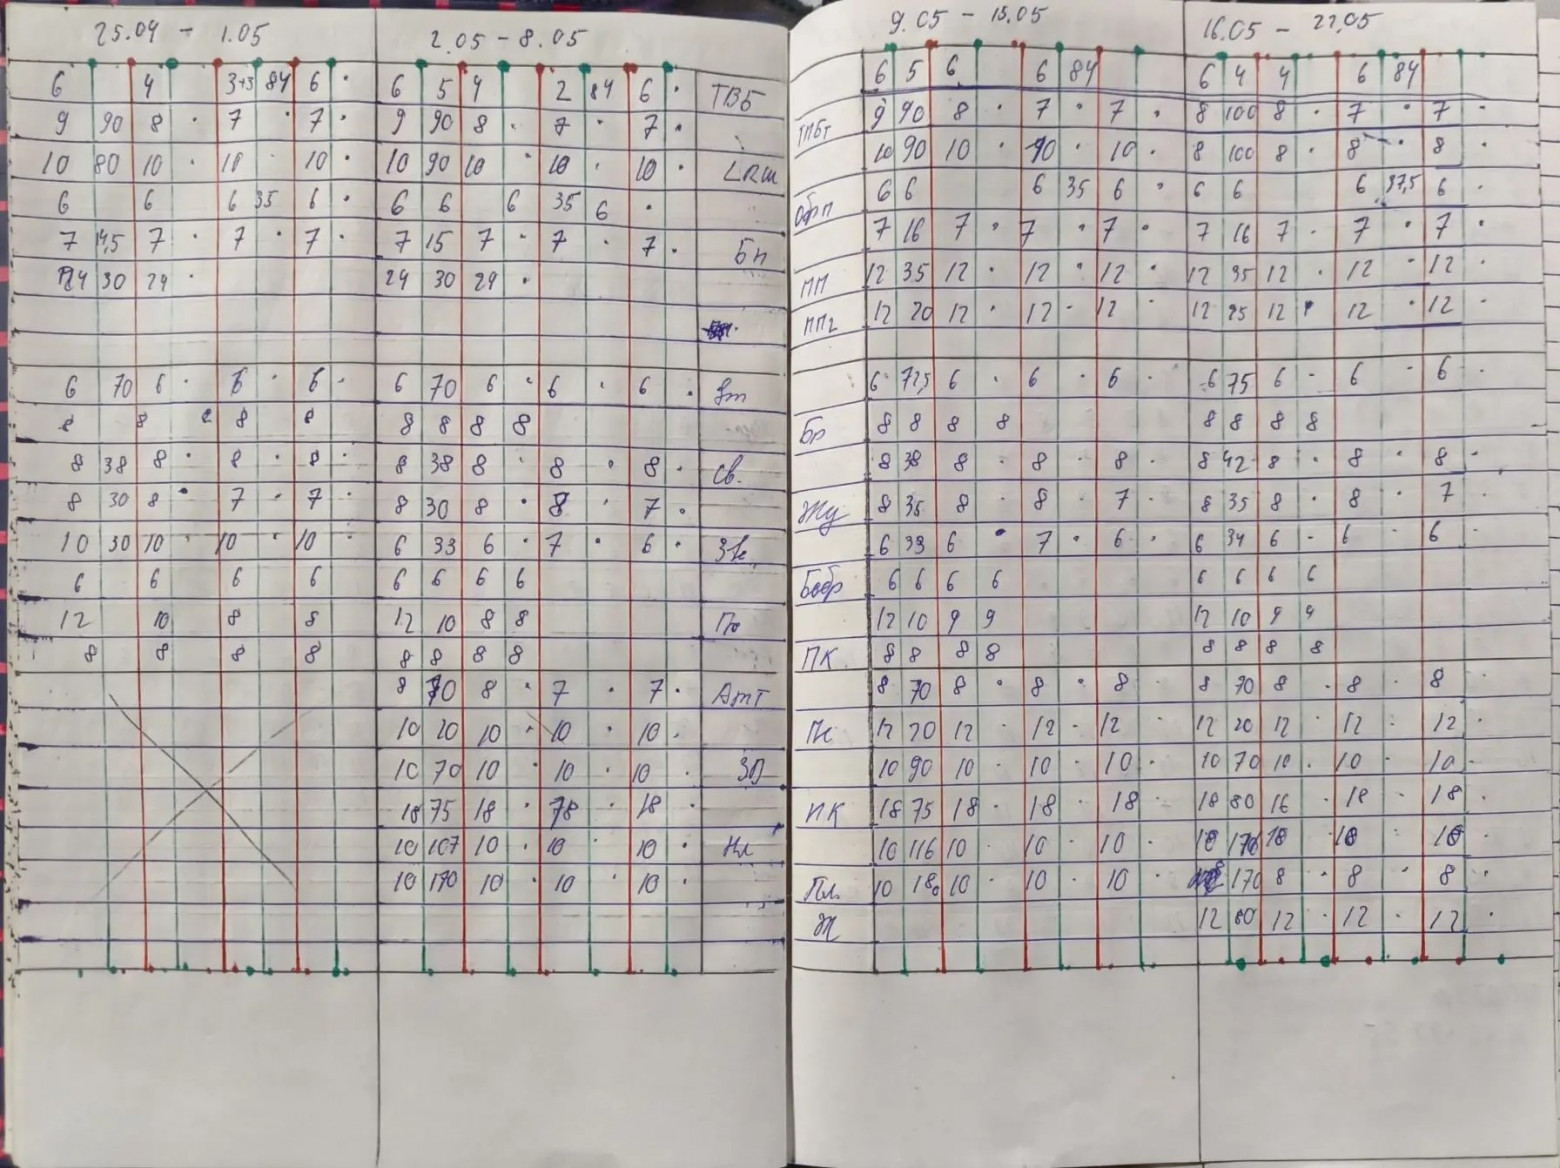 25.04 - 1.05
6 4 3+3 84 6 ·
9 90 8 · 7 · 7 ·
10 80 10 · 10 · 10 ·
6 6 6 35 6 ·
7 14,5 7 · 7 · 7 ·
24 30 24 ·
6 70 6 · 6 · 6 ·
8 8 8 8
8 38 8 · 8 · 8 ·
8 30 8 · 7 · 7 ·
10 30 10 · 10 · 10 ·
6 6 6 6
12 10 8 8
8 8 8 8
2.05 - 8.05
6 5 4 2 84 6 · ТВБ
9 90 8 · 7 · 7 ·
10 90 10 · 10 · 10 · LRш
6 6 6 35 6 ·
7 15 7 · 7 · 7 · Бп
24 30 24 ·
6 70 6 · 6 · 6 ·
8 8 8 8
8 38 8 · 8 · 8 · Св.
8 30 8 · 8 · 7 ·
6 33 6 · 7 · 6 ·
6 6 6 6
12 10 8 8
8 8 8 8
8 70 8 · 7 · 7 · АтТ
10 20 10 · 10 · 10 ·
10 70 10 · 10 · 10 · ЗП
18 75 18 · 78 · 18 ·
10 107 10 · 10 · 10 · Нл
10 170 10 · 10 · 10 ·
9.05 - 15.05
6 5 6 6 84
ТПБт 9 90 8 · 7 · 7 ·
10 90 10 · 90 · 10 ·
Обрп 6 6 6 35 6 ·
7 16 7 · 7 · 7 ·
ПП 12 35 12 · 12 · 12 ·
ПП2 12 20 12 · 12 · 12 ·
6 72,5 6 · 6 · 6 ·
Бр 8 8 8 8
8 38 8 · 8 · 8 ·
Жу 8 35 8 · 8 · 7 ·
6 33 6 · 7 · 6 ·
Бобр 6 6 6 6
12 10 9 9
ПК 8 8 8 8
8 70 8 · 8 · 8 ·
12 20 12 · 12 · 12 ·
10 90 10 · 10 · 10 ·
ПК 18 75 18 · 18 · 18 ·
10 116 10 · 10 · 10 ·
Пл. 10 180 10 · 10 · 10 ·
Ж
16.05 - 22.05
6 4 4 6 84
8 100 8 · 7 · 7 ·
8 100 8 · 8 · 8 ·
6 6 6 37,5 6 ·
7 16 7 · 7 · 7 ·
12 35 12 · 12 · 12 ·
12 25 12 · 12 · 12 ·
6 75 6 · 6 · 6 ·
8 8 8 8
8 42 8 · 8 · 8 ·
8 35 8 · 8 · 7 ·
6 34 6 · 6 · 6 ·
6 6 6 6
12 10 9 9
8 8 8 8
8 70 8 · 8 · 8 ·
12 20 12 · 12 · 12 ·
10 70 10 · 10 · 10 ·
18 80 16 · 18 · 18 ·
10 170 10 10 10 ·
170 8 · 8 · 8 ·
12 80 12 · 12 · 12 ·